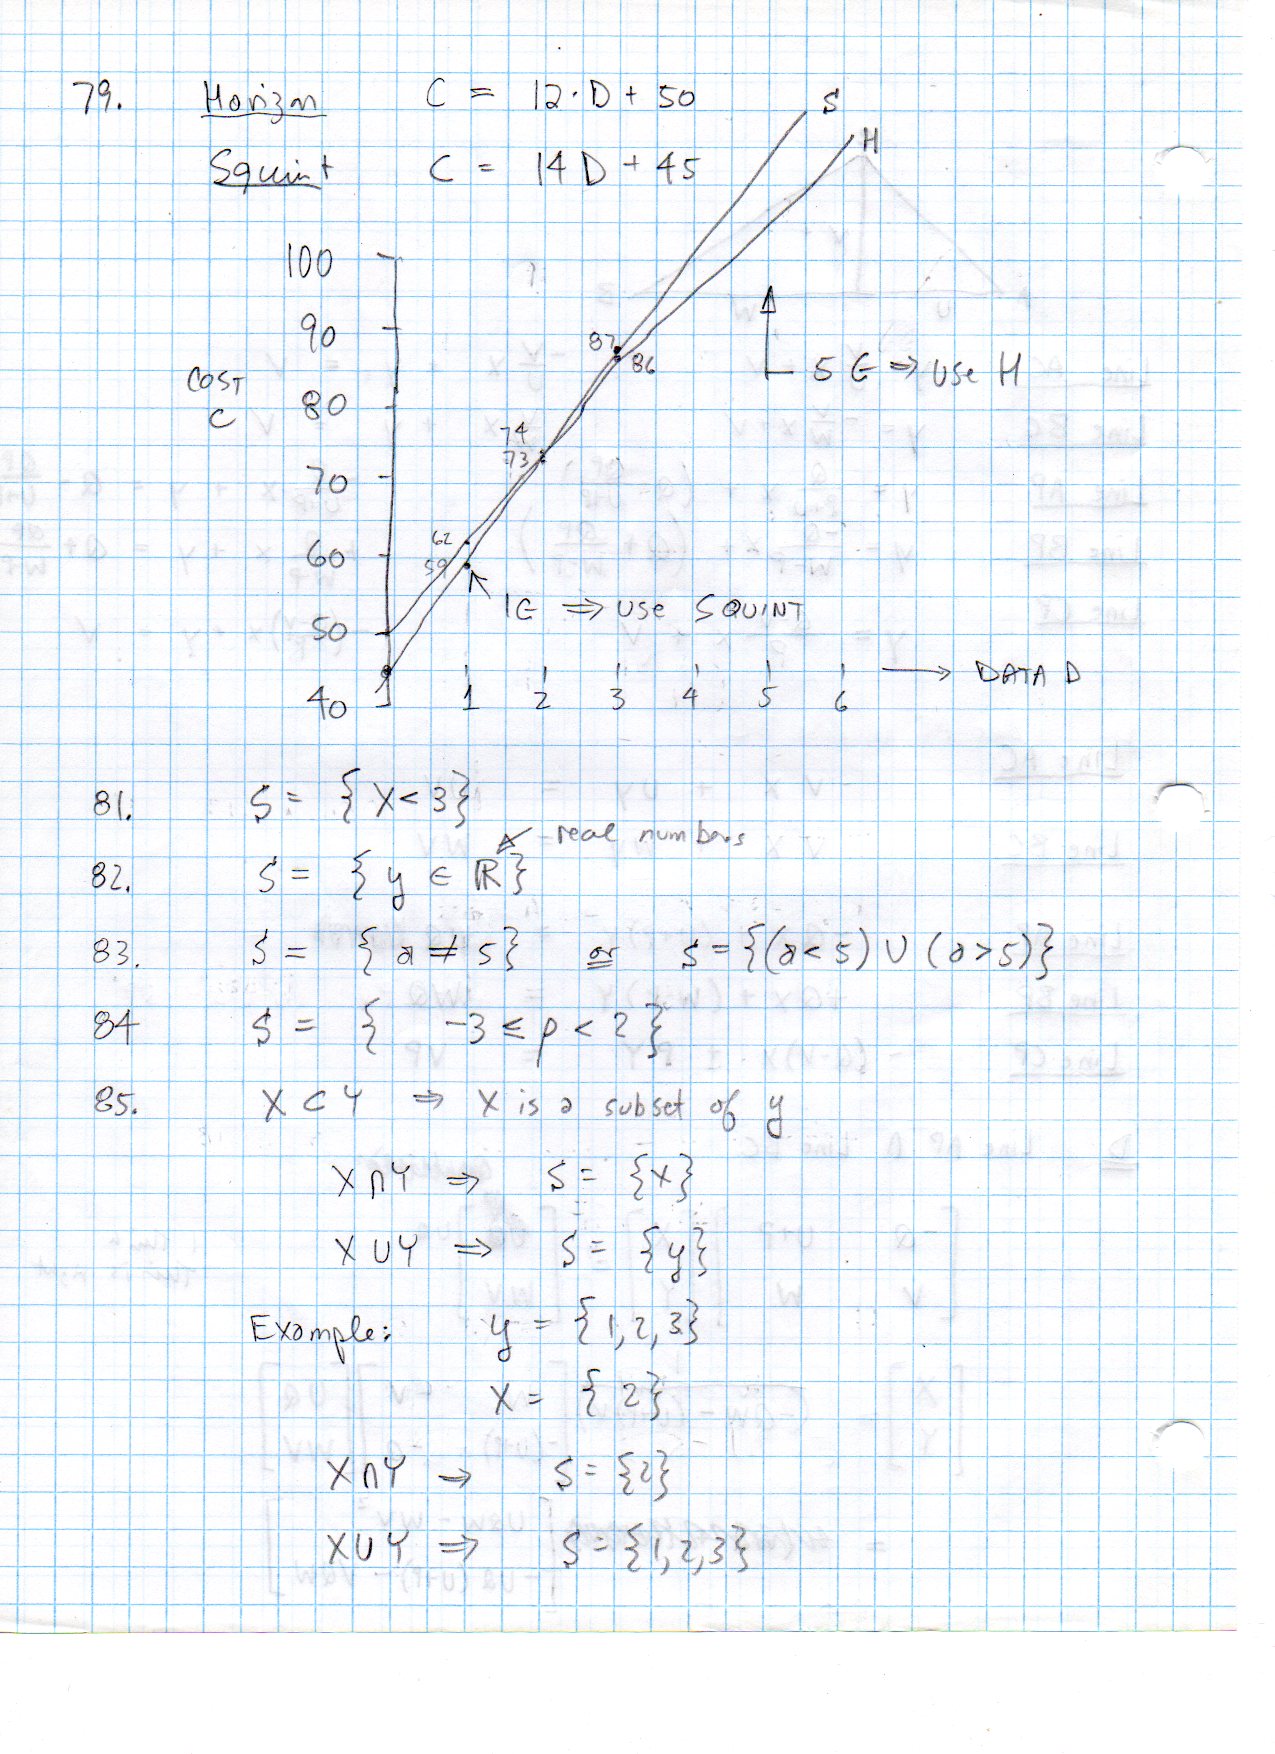 79. Horizon C = 12·D + 50
Squint C = 14D + 45
S
H
100
90
COST
C
80
70
60
50
40
87
86
74
73
62
59
5 G ⇒ USE H
1G ⇒ USE SQUINT
1 2 3 4 5 6 → DATA D
81. S = { X < 3}
real numbers
82. S = { y ∈ ℝ}
83. S = { a ≠ 5} or S = {(a < 5) ∪ (a > 5)}
84 S = { -3 ≤ p < 2}
85. X ⊂ Y ⇒ X is a subset of y
X ∩ Y ⇒ S = {X}
X ∪ Y ⇒ S = {y}
Example: y = {1, 2, 3}
X = { 2}
X ∩ Y → S = {2}
X ∪ Y ⇒ S = {1, 2, 3}